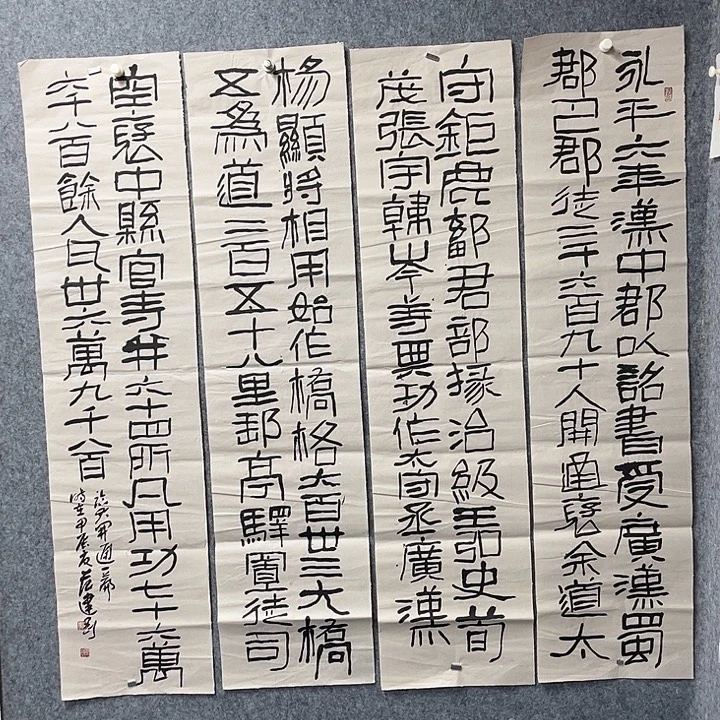 永平六年漢中郡以詔書受廣漢蜀
郡巴郡徒二千六百九十人開通褒余道太
守鉅鹿鄐君部掾治級王弘史荀
茂張宇韓岑等興功作太守丞廣漢
楊顯將相用始作橋格六百卅三大橋
五爲道二百五十八里郵亭驛置徒司
空褒中縣官寺并六十四所凡用功七十六萬
六千八百餘人瓦卅六萬九千八百
臨大開通一節
時在甲辰夏